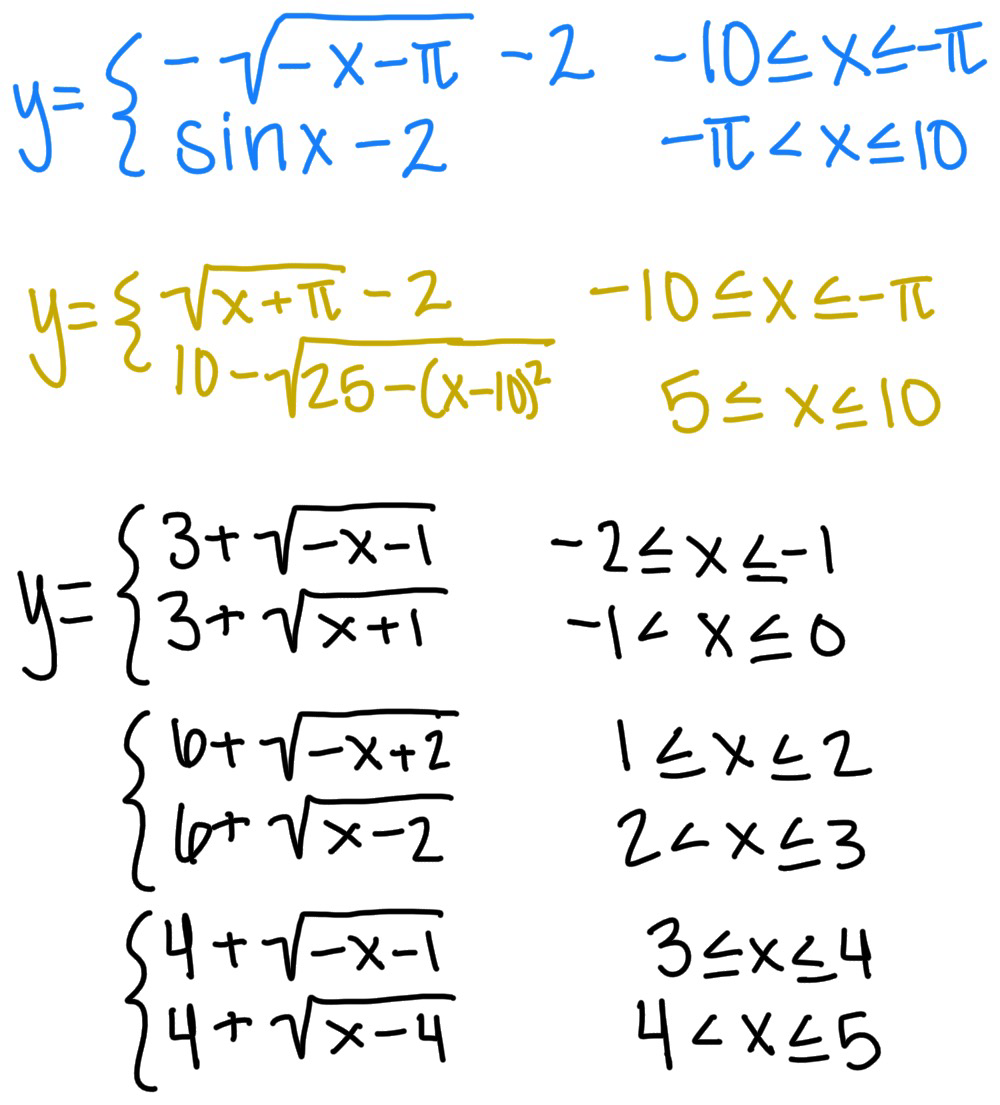 y= { -√(-x-π) - 2 -10≤x≤-π
sinx-2 -π<x≤10
y= { √(x+π) - 2 -10≤x≤-π
10-√(25-(x-10)²) 5≤x≤10
y= { 3+√(-x-1) -2≤x≤-1
3+√(x+1) -1<x≤0
{ 6+√(-x+2) 1≤x≤2
6+√(x-2) 2<x≤3
{ 4+√(-x-1) 3≤x≤4
4+√(x-4) 4<x≤5